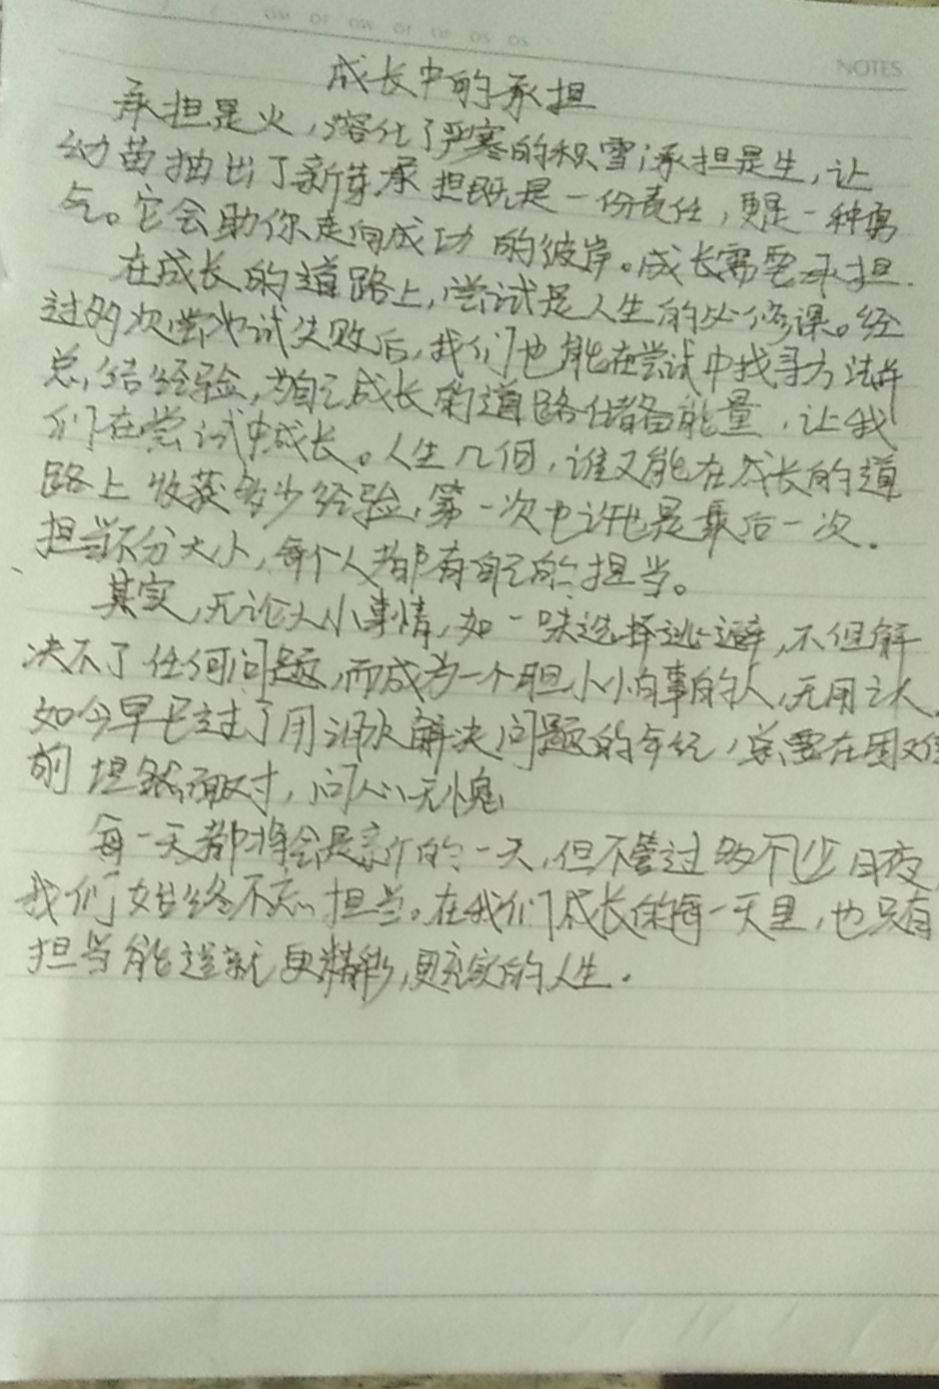 NOTES
成长中的承担
承担是火，溶化了严寒的积雪；承担是生，让
幼苗抽出了新芽承担既是一份责任，更是一种勇
气。它会助你走向成功的彼岸。成长需要承担.
在成长的道路上，尝试是人生的必修课。经
过多次尝试失败后，我们也能在尝试中找寻方法并
总结经验，为自己成长的道路储备能量，让我
们在尝试中成长。人生几何，谁又能在成长的道
路上收获多少经验，第一次也许也是最后一次.
担当不分大小，每个人都有自己的担当。
其实，无论大小事情，如一味选择逃避，不但解
决不了任何问题，而成为一个胆小怕事的人，无用之人.
如今早已过了用泪水解决问题的年纪，总要在困难
前坦然面对，问心无愧
每一天都将会是新的一天，但不管过多个日夜，
我们始终不忘担当。在我们成长的每一天里，也只有
担当能造就更精彩，更充实的人生.